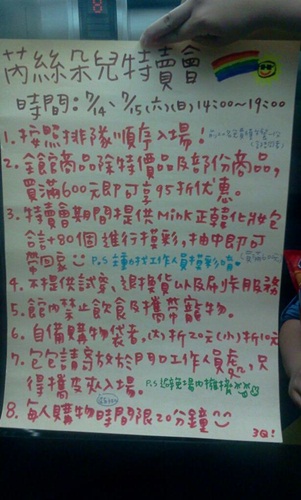 芮絲朵兒特賣會
時間:7/14、7/15(六)(日)14:00~19:00
1. 按照排隊順序入場!
2. 全館商品除特價品及部份商品,
買滿600元即可享95折優惠。
3. 特賣會期間提供Mink正韓化妝包
合計80個進行摸彩,抽中即可
帶回家 P.S 請找工作人員摸彩唷
4. 不提供試穿、退換貨以及刷卡服務
5. 館內禁止飲食及攜帶寵物。
6. 自備購物袋者,(大)折20元(小)折10元
7. 包包請寄放於門口工作人員處,只
得攜皮夾入場。 P.S 避免場內擁擠
8. 每人購物時間限20分鐘
3Q!